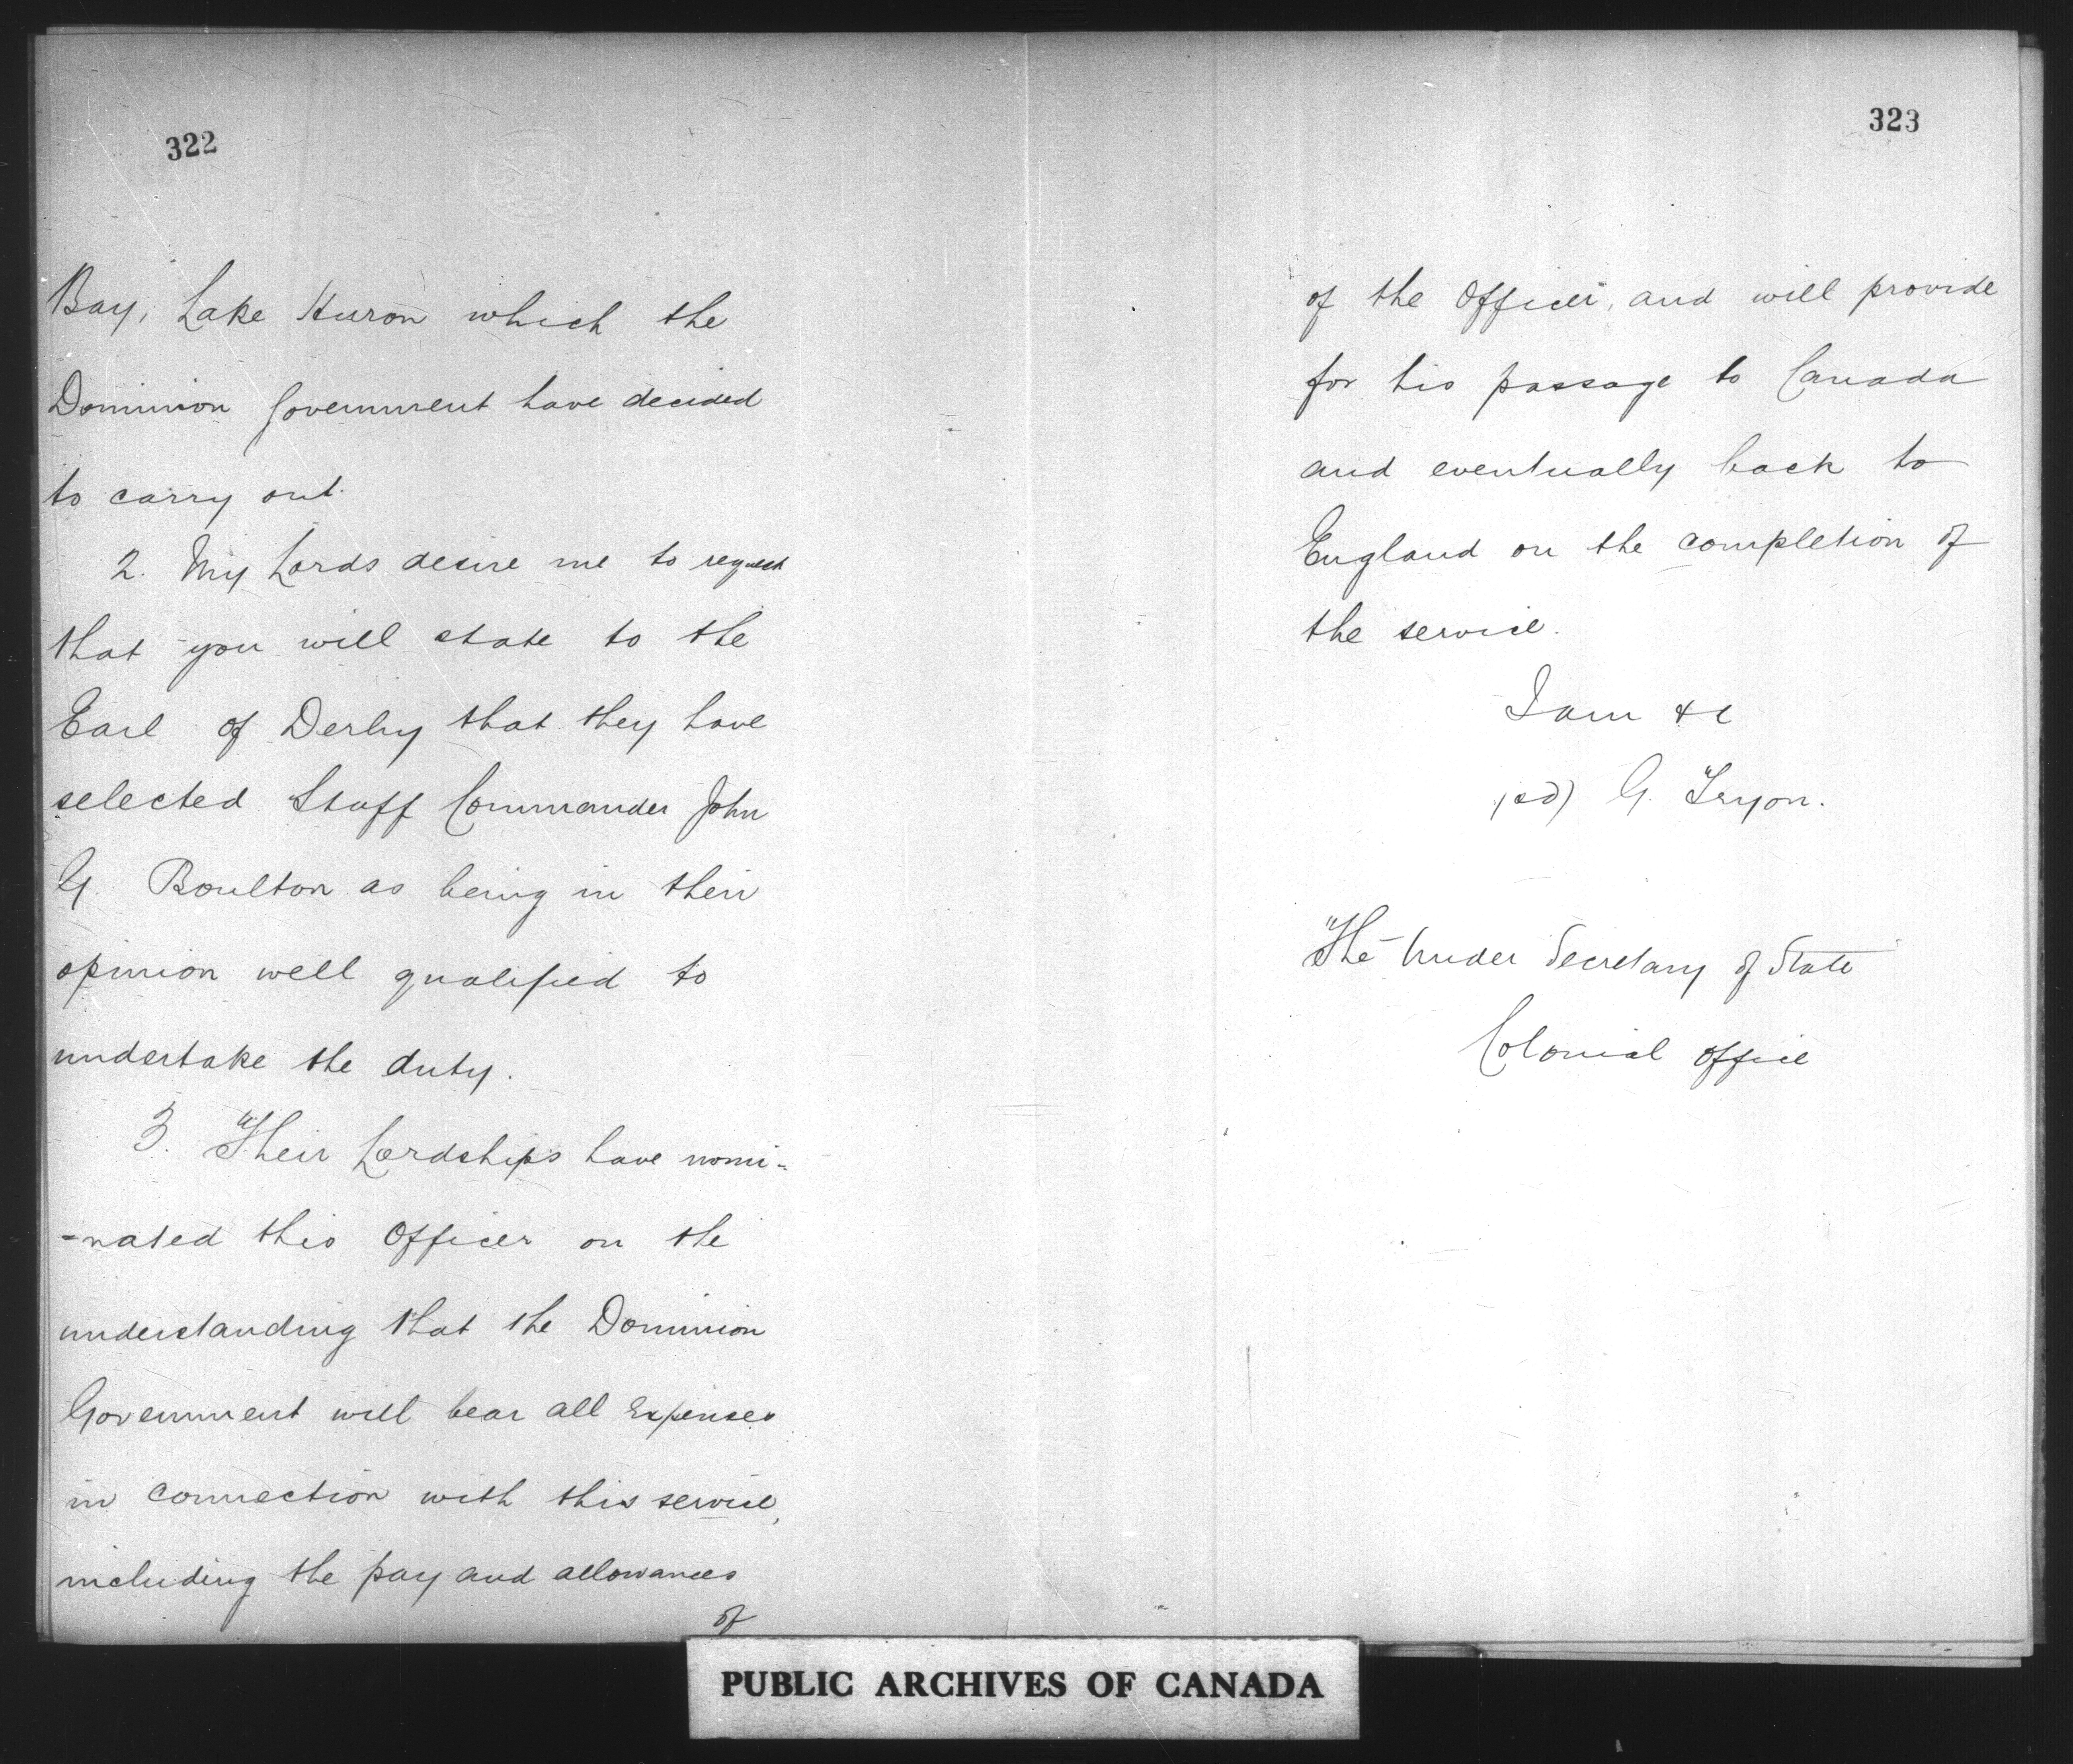 322
Bay, Lake Huron which the
Dominion Government have decided
to carry out.
2. My Lords desire me to request
that you will state to the
Earl of Derby that they have
selected Staff Commander John
G. Boulton as being in their
opinion well qualified to
undertake the duty.
3. Their Lordships have nomi-
-nated this Officer on the
understanding that the Dominion
Government will bear all Expenses
in connection with this service,
including the pay and allowances
of
323
of the Officer, and will provide
for his passage to Canada
and eventually back to
England on the completion of
the service.
I am &c
sd) G. Tryon.
The Under Secretary of State
Colonial Office
PUBLIC ARCHIVES OF CANADA